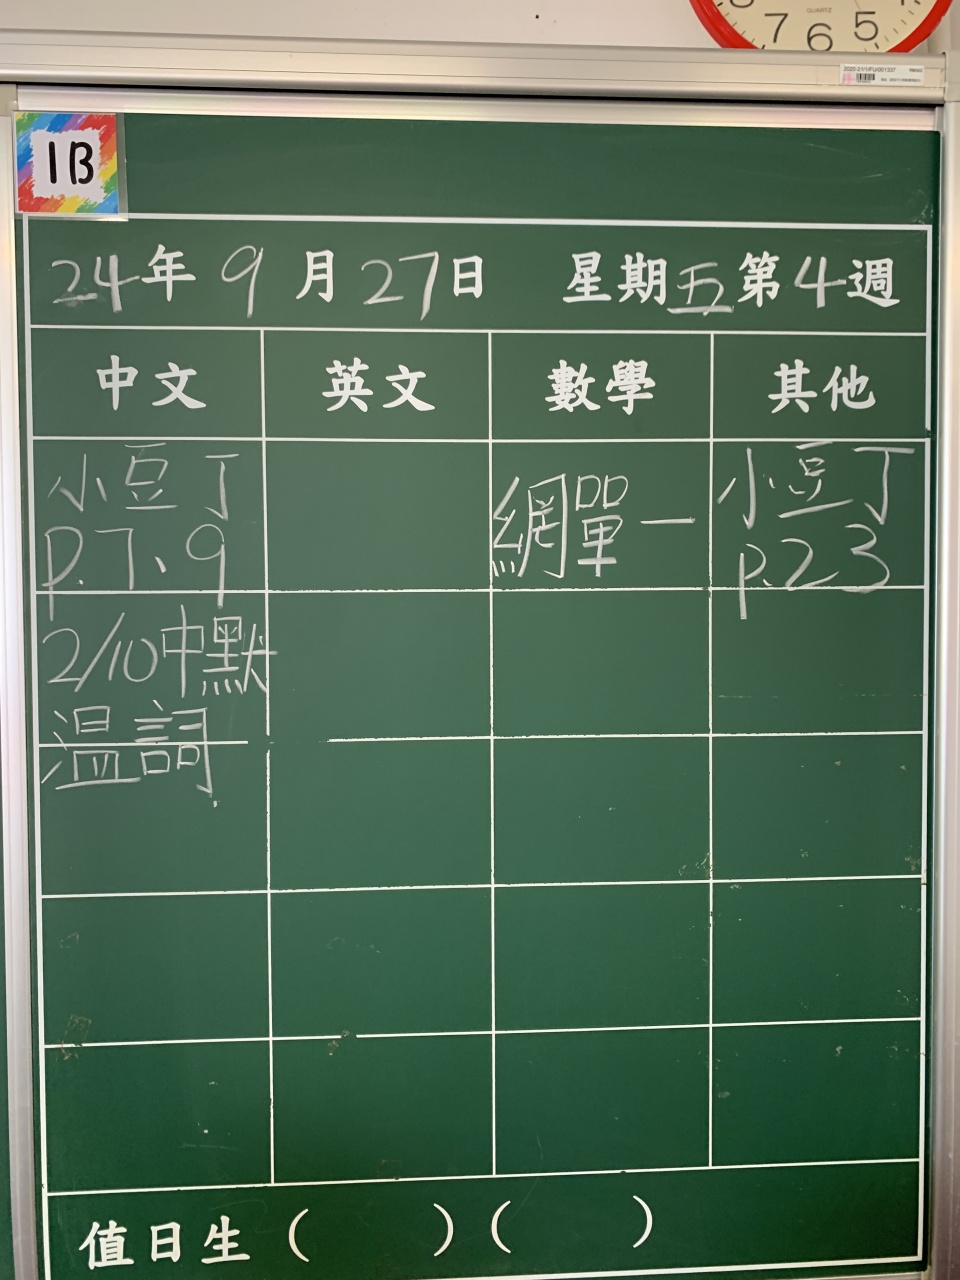 7 6 5
QUARTZ
1B
24年9月27日 星期五第4週
中文 英文 數學 其他
小豆丁
p.7、9
2/10中默
溫詞
網單一
小豆丁
p.23
值日生( )( )